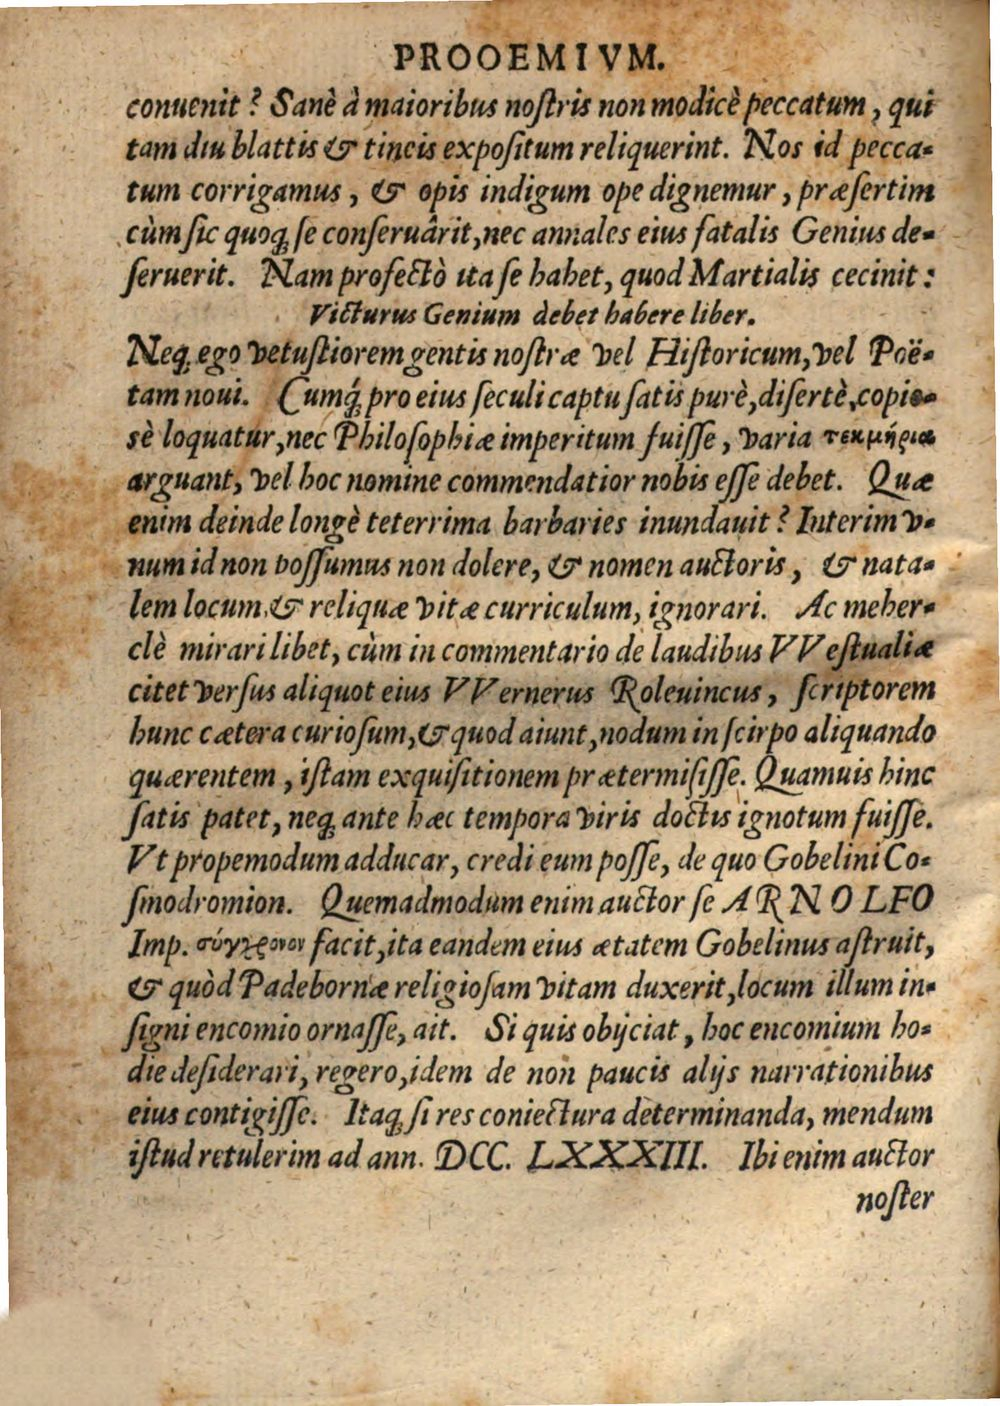 PROOEMIVM.
conuenit? Sanè à maioribus noſtris non modicè peccatum, qui
tam diu blattis & tineis expoſitum reliquerint. Nos id pecca-
tum corrigamus, & opis indigum ope dignemur, præſertim
cùm ſic quoq; ſe conſeruârit, nec annales eius fatalis Genius de-
ſeruerit. Nam profectò ita ſe habet, quod Martialis cecinit:
Victurus Genium debet habere liber.
Neq; ego vetuſtiorem gentis noſtræ vel Hiſtoricum, vel Poë-
tam noui. Cumq́; pro eius ſeculi captu ſatis purè, diſertè, copio-
sè loquatur, nec Philoſophiæ imperitum fuiſſe, varia τεκμήρια
arguant, vel hoc nomine commendatior nobis eſſe debet. Quæ
enim deinde longè teterrima barbaries inundauit? Interim v-
num id non poſſumus non dolere, & nomen auctoris, & nata-
lem locum, & reliquæ vitæ curriculum, ignorari. Ac meher-
clè mirari libet, cùm in commentario de laudibus VVeſtualiæ
citet verſus aliquot eius VVernerus Roleuincus, ſcriptorem
hunc cætera curioſum, & quod aiunt, nodum in ſcirpo aliquando
quærentem, iſtam exquiſitionem prætermiſiſſe. Quamuis hinc
ſatis patet, neq; ante hæc tempora viris doctis ignotum fuiſſe.
Vt propemodum adducar, credi eum poſſe, de quo Gobelini Co-
ſmodromion. Quemadmodum enim auctor ſe ARNOLFO
Imp. σύγχρονον facit, ita eandem eius ætatem Gobelinus aſtruit,
& quòd Padebornæ religioſam vitam duxerit, locum illum in-
ſigni encomio ornaſſe, ait. Si quis obijciat, hoc encomium ho-
die deſiderari, regero, idem de non paucis alijs narrationibus
eius contigiſſe. Itaq; ſi res coniectura determinanda, mendum
iſtud retulerim ad ann. DCC. LXXXIII. Ibi enim auctor
noſter